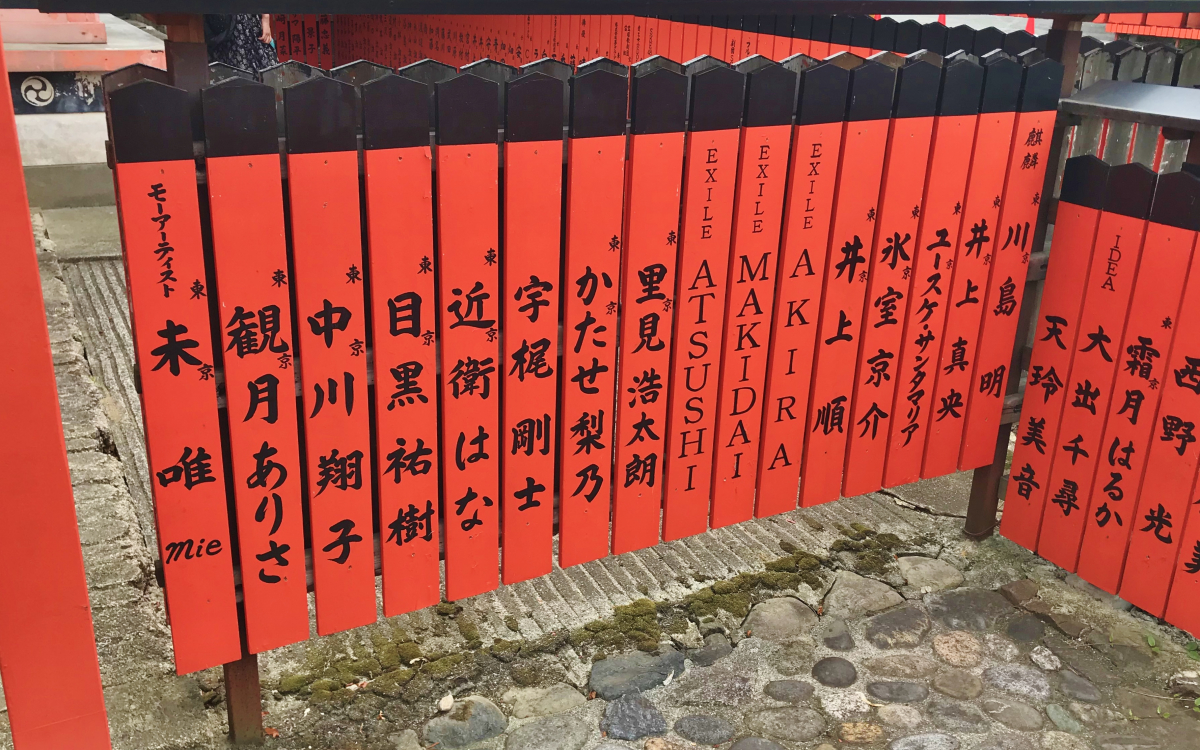 モーアーティスト 東京 未唯 mie
東京 観月ありさ
東京 中川翔子
東京 目黒祐樹
東京 近衛はな
宇梶剛士
東京 かたせ梨乃
東京 里見浩太朗
EXILE ATSUSHI
EXILE MAKIDAI
EXILE AKIRA
東京 井上順
東京 氷室京介
東京 ユースケ・サンタマリア
東京 井上真央
麒麟 東京 川島明
天玲美音
IDEA 大出千尋
東京 霜月はるか
西野 光